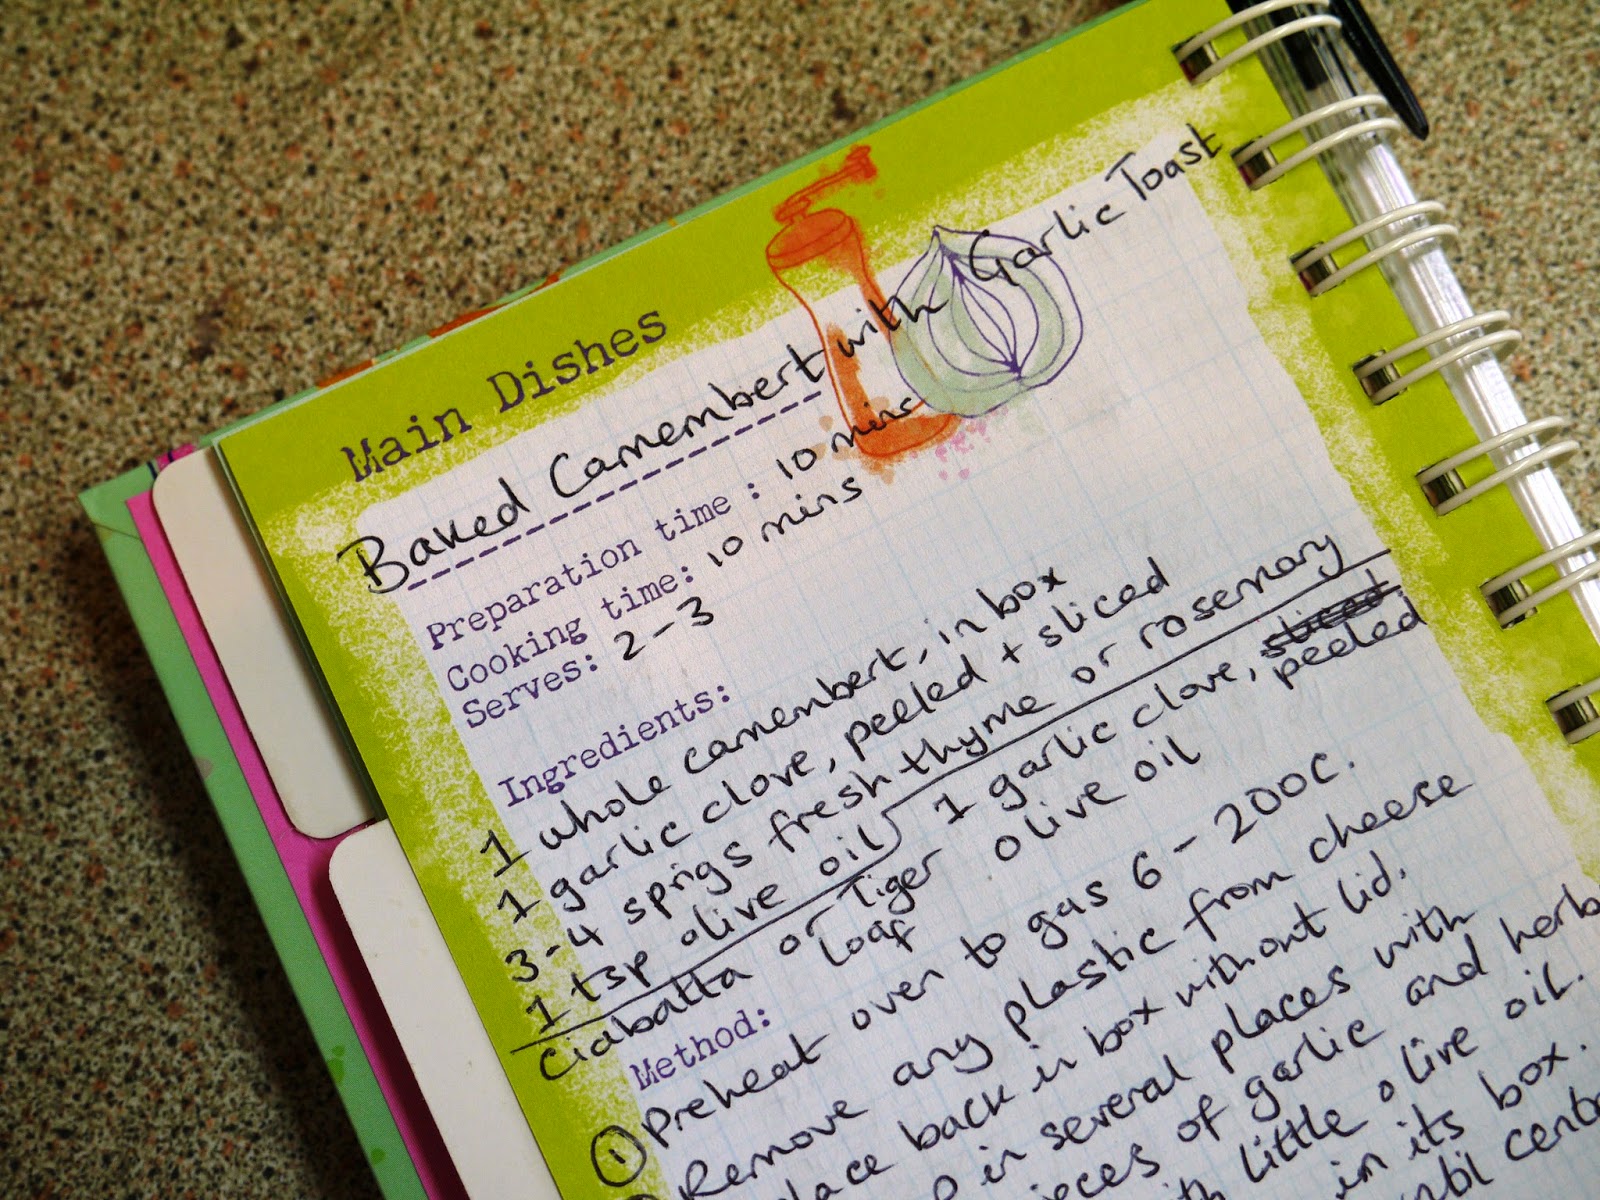 Main Dishes
Baked Camembert with Garlic Toast
Preparation time : 10 mins
Cooking time: 10 mins
Serves: 2-3
Ingredients:
1 whole camembert, in box
1 garlic clove, peeled + sliced
3-4 sprigs fresh thyme or rosemary
1 tsp olive oil
1 garlic clove, sliced peeled
ciabatta or Tiger loaf
olive oil
Method:
① Preheat oven to gas 6 - 200C.
Remove any plastic from cheese
back in box without lid.
in several places with
of garlic and herb
little olive oil.
in its box.